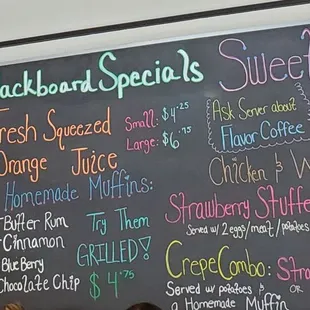 lackboard Specials
resh Squeezed
Orange Juice
Small: $4.25
Large: $6.95
Homemade Muffins:
Butter Rum
Cinnamon
Blue Berry
Chocolate Chip
Try Them
GRILLED!
$4.75
Sweet
Ask Server about
Flavor Coffee
Chicken & W
Strawberry Stuffe
Served w/ 2 eggs/meat/potatoes
Crepe Combo: Stra
Served w/ potatoes &
OR
a Homemade Muffin